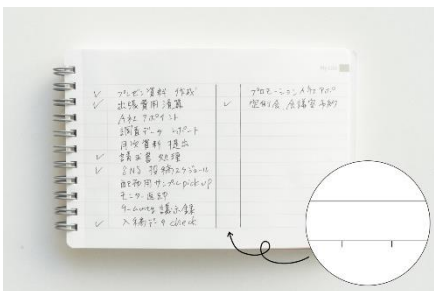 ✓ プレゼン資料 作成
✓ 出張費用 清算
A社 アポイント
調査データ レポート
月次資料 提出
✓ 請求書 処理
✓ SNS 投稿スケジュール
配布用サンプル pick up
モニター 返却
チームmtg 議事録
✓ 入稿データ check
プロモーション
✓ 定例会 会議室予約